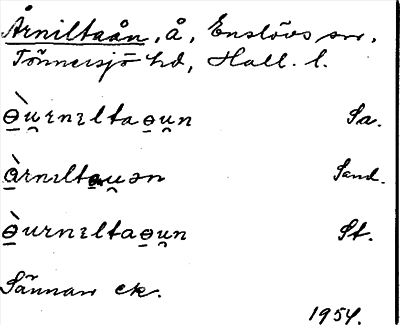 Årniltaån, å, Enslövs sn,
Tönnersjö hd, Hall. l.
ɵ̲̀u̯rnɩltaɵ̲u̯n Sa.
à̲rnɩltau̯ən Sand.
ɵ̲̀urnɩltaɵ̲u̯n St.
Sännan ek.
1954.